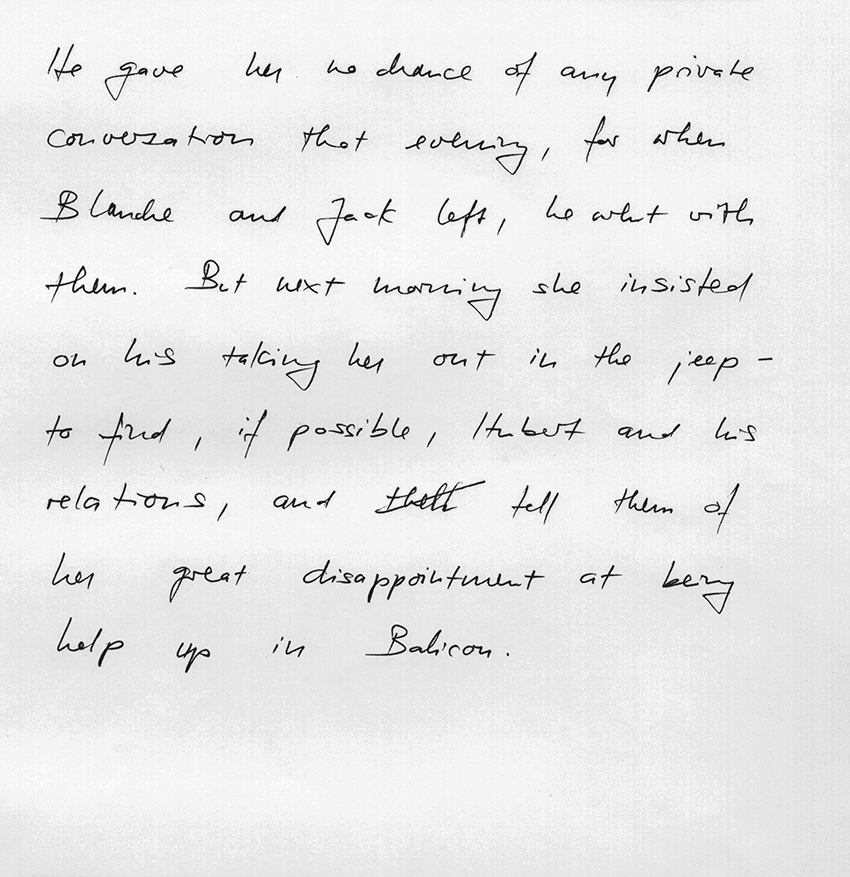 He gave her no chance of any private
conversation that evening, for when
Blanche and Jack left, he whet with
them. But next morning she insisted
on his taking her out in the jeep -
to find, if possible, Hubert and his
relations, and tell them of
her great disappointment at being
help up in Balicon.